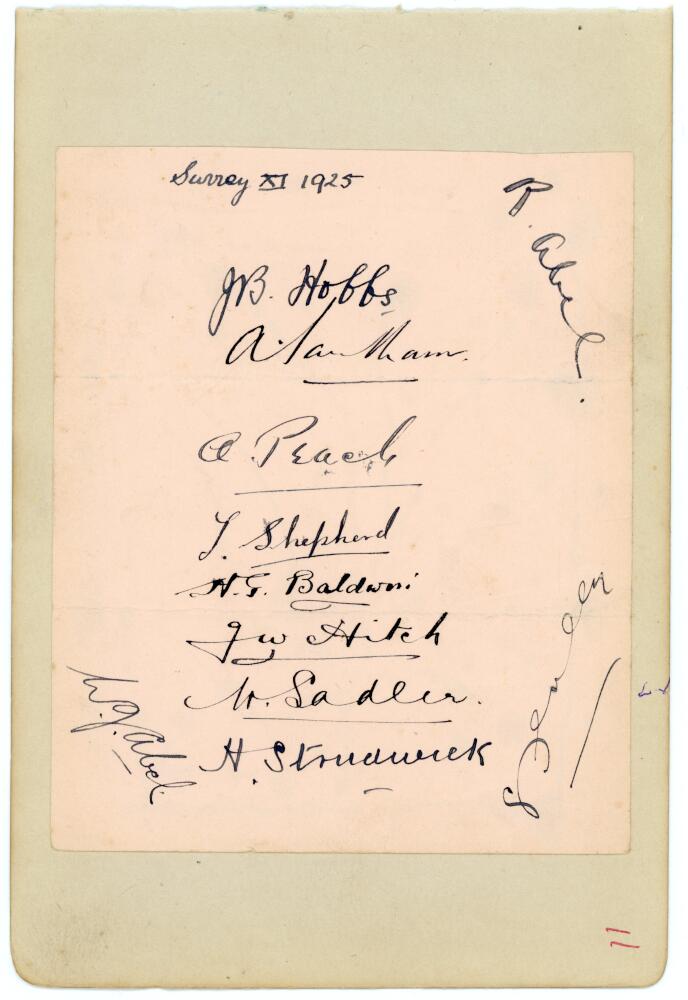 Surrey XI 1925
R. Abel.
J.B. Hobbs
A. Sandham.
A. Peach
T. Shepherd
H.G. Baldwin
J W Hitch
W. Sadler.
H. Strudwick
W.J. Abel.
S Geary
11